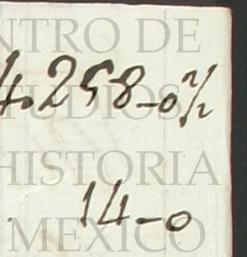 NTRO DE
4.258-0 1/2
UDIOS
HISTORIA
14-0
MEXICO